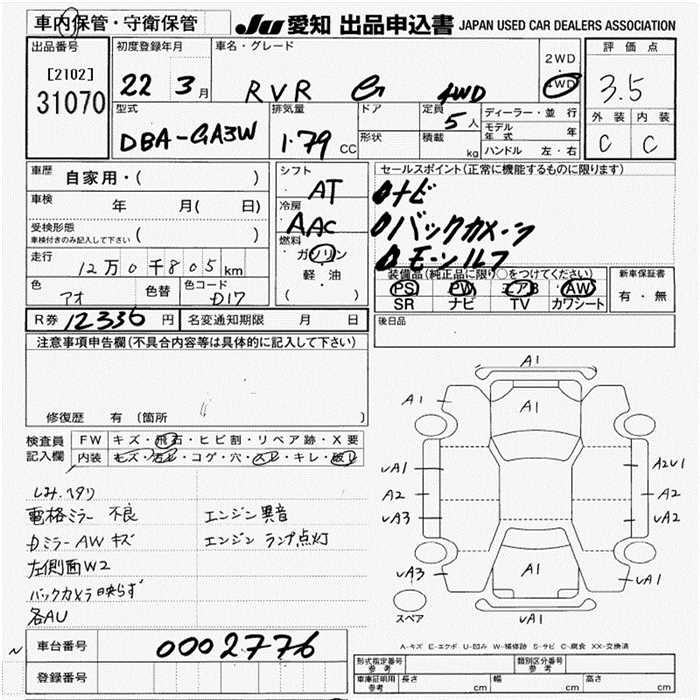 車内保管・守衛保管
JU 愛知 出品申込書 JAPAN USED CAR DEALERS ASSOCIATION
出品番号
[2102]
31070
初度登録年月
22 3月
車名・グレード
RVR G 4WD
2WD
4WD
評価点
3.5
外装 内装
C C
型式
DBA-GA3W
排気量
1.79 CC
ドア
形状
定員
5人
積載
kg
ディーラー・並行
モデル年式 年
ハンドル 左・右
車歴 自家用・( )
車検 年 月( 日)
受検形態
車検付きのみ記入して下さい ( )
走行 12万0千805km
色 アオ 色替 色コード D17
R券 12336円 名変通知期限 月 日
シフト
AT
冷房
AAC
燃料
ガソリン
軽・油
( )
セールスポイント(正常に機能するものに限ります)
ナビ
バックカメラ
装備品(純正品に限り○をつけてください)
PS PW エアB AW
SR ナビ TV カワシート
新車保証書
有・無
後日品
注意事項申告欄(不具合内容等は具体的に記入して下さい)
修復歴 有(箇所 )
検査員記入欄
FW キズ・飛石・ヒビ割・リペア跡・X要
内装 キズ・汚レ・コゲ・穴・スレ・キレ・破レ
しみ.ヘタリ
電格ミラー不良
DミラーAWキズ
左側面W2
バックカメラ映らず
各AU
エンジン異音
エンジンランプ点灯
A1
A1
A1
UA1 A2U1
A2 A2
UA3 UA2
A1
UA3 UA1
UA1
スペア
A-キズ E-エクボ U-凹み W-補修跡 S-サビ C-腐食 XX-交換済
車台番号 0002776
登録番号
形式指定番号 参考
類別区分番号 参考
車庫証明用 参考 長さ cm 幅 cm 高さ cm